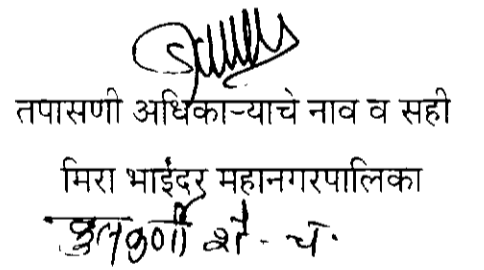 तपासणी अधिकाऱ्याचे नाव व सही
मिरा भाईंदर महानगरपालिका
कुलकर्णी शै. चं.